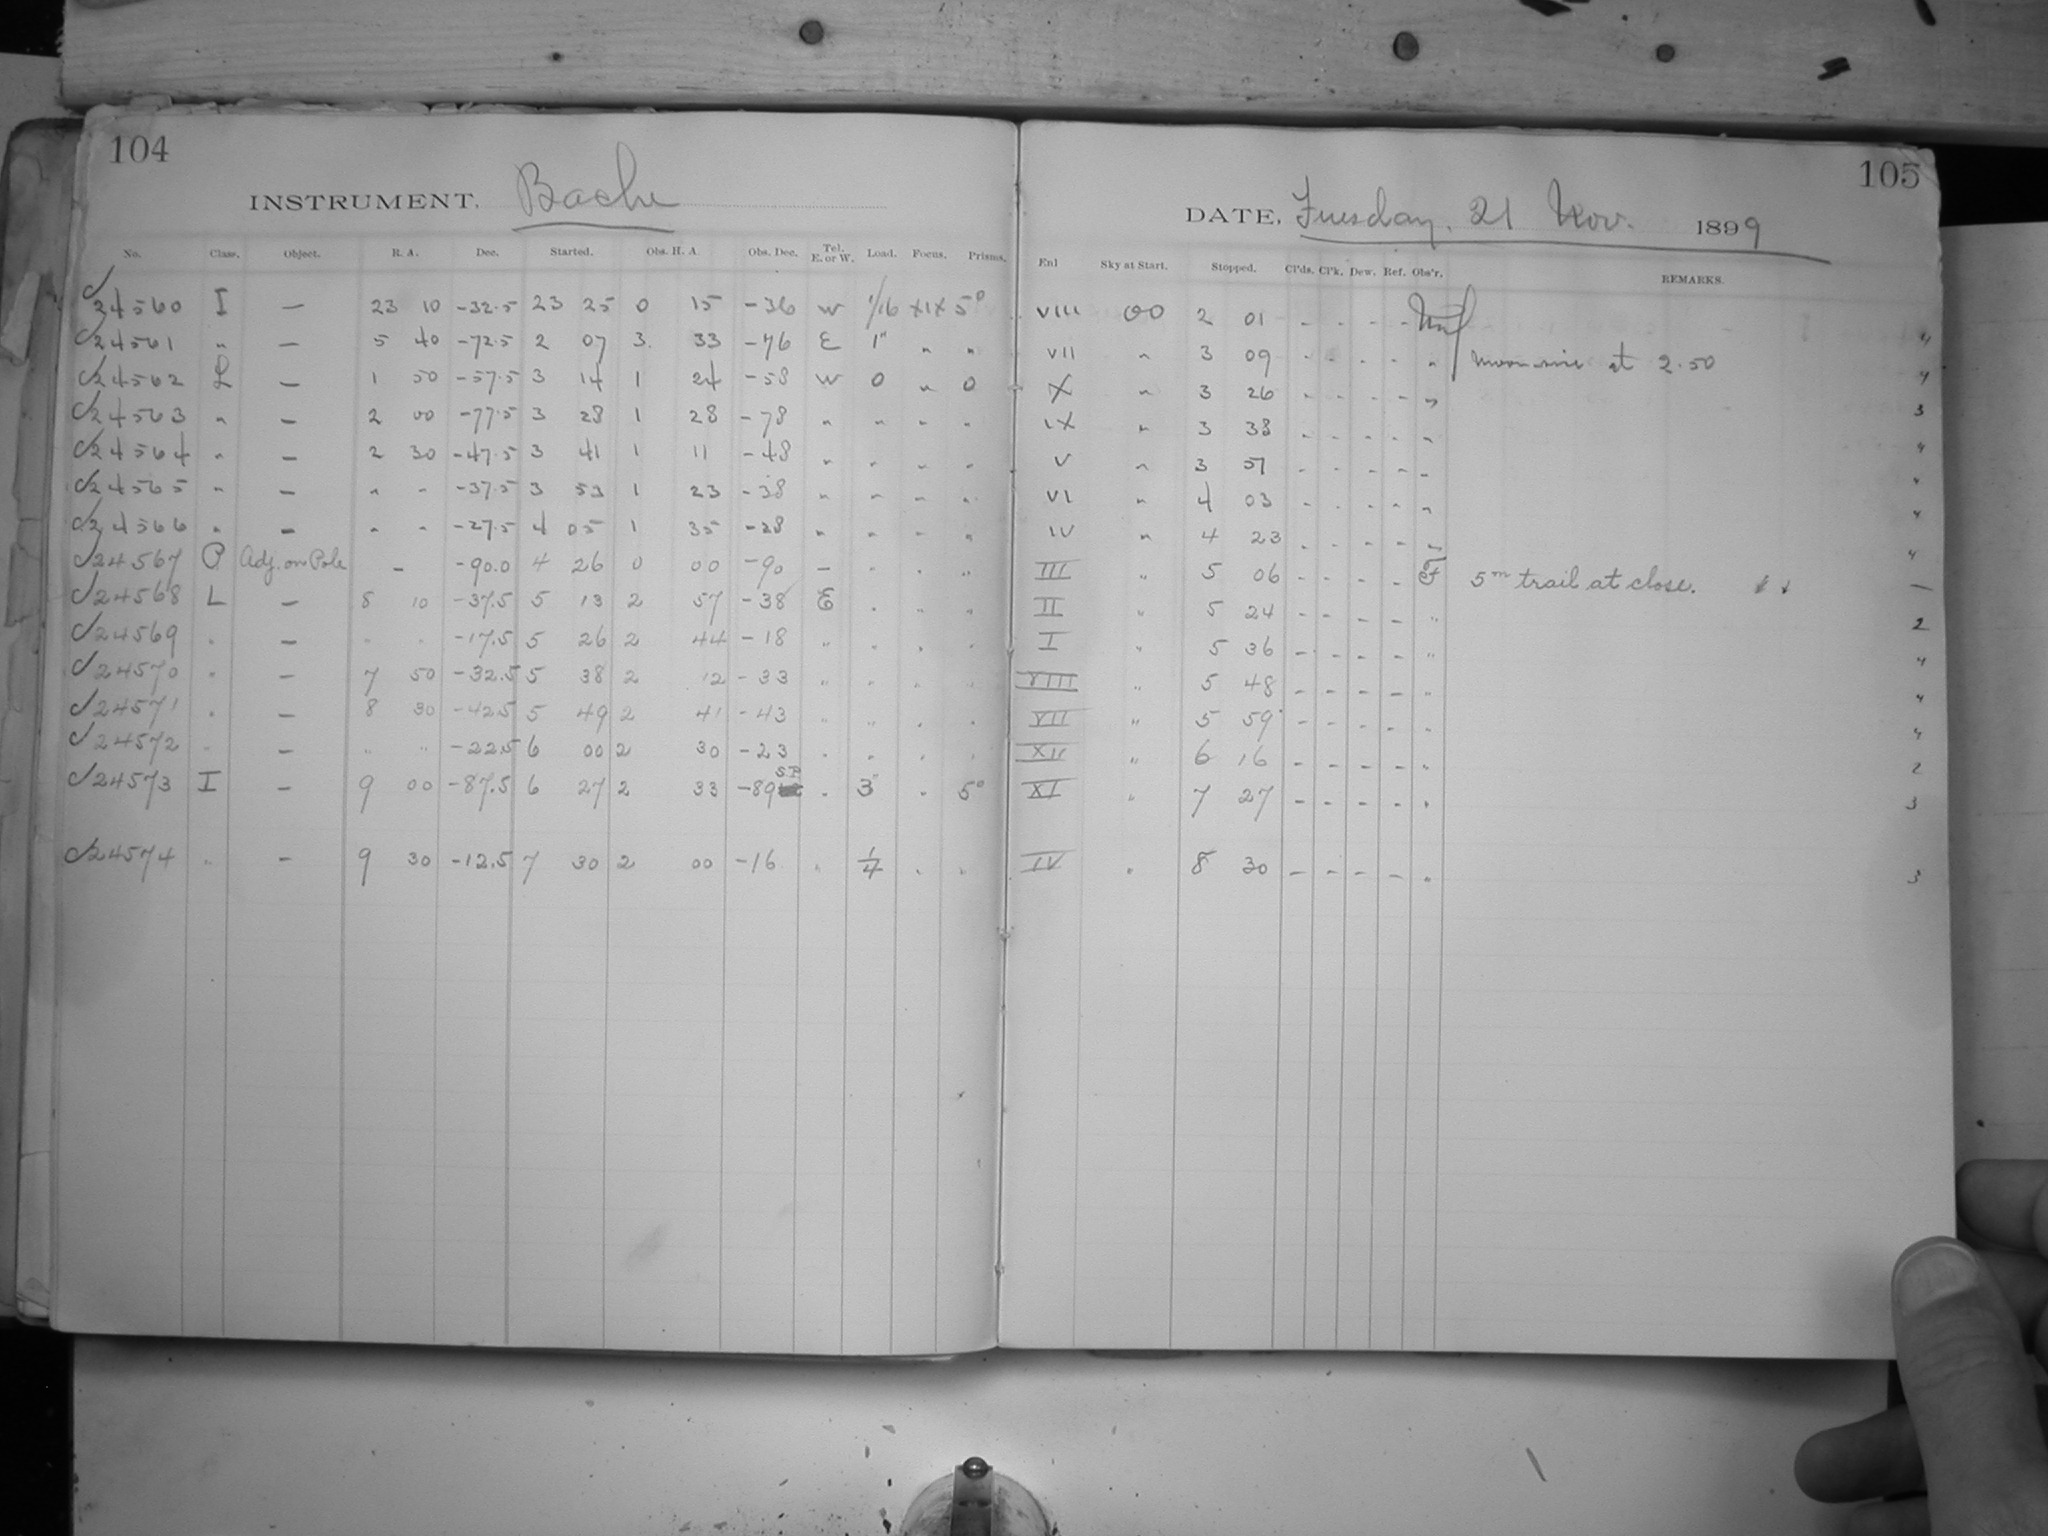 104
INSTRUMENT. Bache
No. Class. Object. R. A. Dec. Started. Obs. H. A. Obs. Dec. Tel. E. or W. Load. Focus. Prisms.
24560 I — 23 10 -32.5 23 25 0 15 -36 W 1/16 XIX 5°
24561 " — 5 40 -72.5 2 07 3 33 -76 E 1" " "
24562 L — 1 50 -57.5 3 14 1 24 -58 W 0 " 0
24563 " — 2 00 -77.5 3 28 1 28 -78 " " " "
24564 " — 2 30 -47.5 3 41 1 11 -48 " " " "
24565 " — " " -37.5 3 53 1 23 -38 " " " "
24566 " — " " -27.5 4 05 1 35 -28 " " " "
24567 P Adj. on Pole — -90.0 4 26 0 00 -90 — " " "
24568 L — 8 10 -37.5 5 13 2 57 -38 E " " "
24569 " — " " -17.5 5 26 2 44 -18 " " " "
24570 " — 7 50 -32.5 5 38 2 12 -33 " " " "
24571 " — 8 30 -42.5 5 49 2 41 -43 " " " "
24572 " — " " -22.5 6 00 2 30 -23 " " " "
24573 I — 9 00 -87.5 6 27 2 33 -89 S.P. " 3" " 5°
24574 " — 9 30 -12.5 7 30 2 00 -16 " 1/4 " "
105
DATE, Tuesday, 21 Nov. 1899
Enl Sky at Start. Stopped. Cl'ds. Cl'k. Dew. Ref. Obs'r. REMARKS.
VIII 00 2 01 - - - - "
VII " 3 09 - - - - " Moon-rise at 2.50 "
X " 3 26 - - - - " 3
IX " 3 38 - - - - " "
V " 3 51 - - - - " "
VI " 4 03 - - - - " "
IV " 4 23 - - - - " "
III " 5 06 - - - - 5m trail at close. —
II " 5 24 - - - - " 2
I " 5 36 - - - - " "
VIII " 5 48 - - - - " "
VII " 5 59 - - - - " "
XII " 6 16 - - - - " 2
XI " 7 27 - - - - " 3
IV " 8 30 - - - - " 3